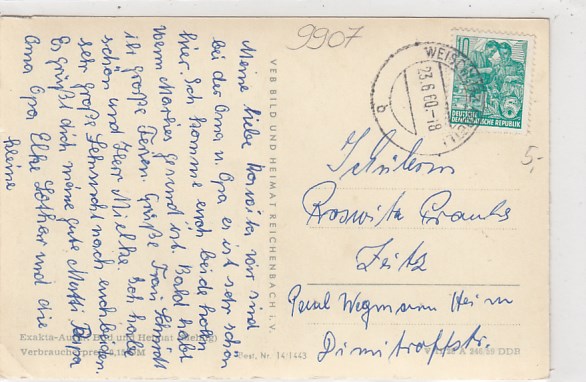 Meine liebe Roswita, wir sind
bei der Oma u. Opa es ist sehr schön
hier. Ich komme euch beide holen
wenn Marlies gesund ist. Bald habt
ihr große Ferien. Grüße Frau Schmidt
schön und Herr Mielke. Ich habe
sehr große Sehnsucht nach euch beiden.
Es grüßt dich deine gute Mutti Pappa
Oma Opa, Elke Lothar und die
kleine
9907
VEB BILD UND HEIMAT REICHENBACH i. V.
23.6.60.-18
b
10
DEUTSCHE
DEMOKRATISCHE REPUBLIK
5,-
Schülerin
Roswita
Zeitz
Paul Wegmann Heim
Dimitroffstr.
Exakta-Aufn.: Bild und Heimat
Verbraucherpreis 0,15 DM
Best. Nr. 14/1443
DDR